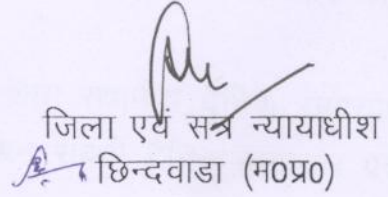 जिला एवं सत्र न्यायाधीश
छिन्दवाडा (म0प्र0)